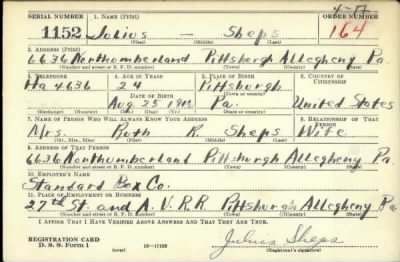 SERIAL NUMBER 1. NAME (Print) ORDER NUMBER
1152 Julius — Sheps 164
(First) (Middle) (Last)
2. ADDRESS (Print)
6636 Northumberland Pittsburgh Allegheny Pa.
(Number and street or R. F. D. number) (Town) (County) (State)
3. TELEPHONE 4. AGE IN YEARS 5. PLACE OF BIRTH 6. COUNTRY OF CITIZENSHIP
Ha 4636 24 Pittsburgh
DATE OF BIRTH (Town or county)
Aug. 25 Pa. United States
(Exchange) (Number) (Mo.) (Day) (Yr.) (State or country)
7. NAME OF PERSON WHO WILL ALWAYS KNOW YOUR ADDRESS 8. RELATIONSHIP OF THAT PERSON
Mrs. Ruth R. Sheps Wife
(Mr., Mrs., Miss) (First) (Middle) (Last)
9. ADDRESS OF THAT PERSON
6636 Northumberland Pittsburgh Allegheny Pa.
(Number and street or R. F. D. number) (Town) (County) (State)
10. EMPLOYER'S NAME
Standard Box Co.
11. PLACE OF EMPLOYMENT OR BUSINESS
27th St. and A.V.R.R. Pittsburgh Allegheny Pa
(Number and street or R. F. D. number) (Town) (County) (State)
I AFFIRM THAT I HAVE VERIFIED ABOVE ANSWERS AND THAT THEY ARE TRUE.
REGISTRATION CARD
D. S. S. Form 1 (over) 16—17105 Julius Sheps
(Registrant's signature)